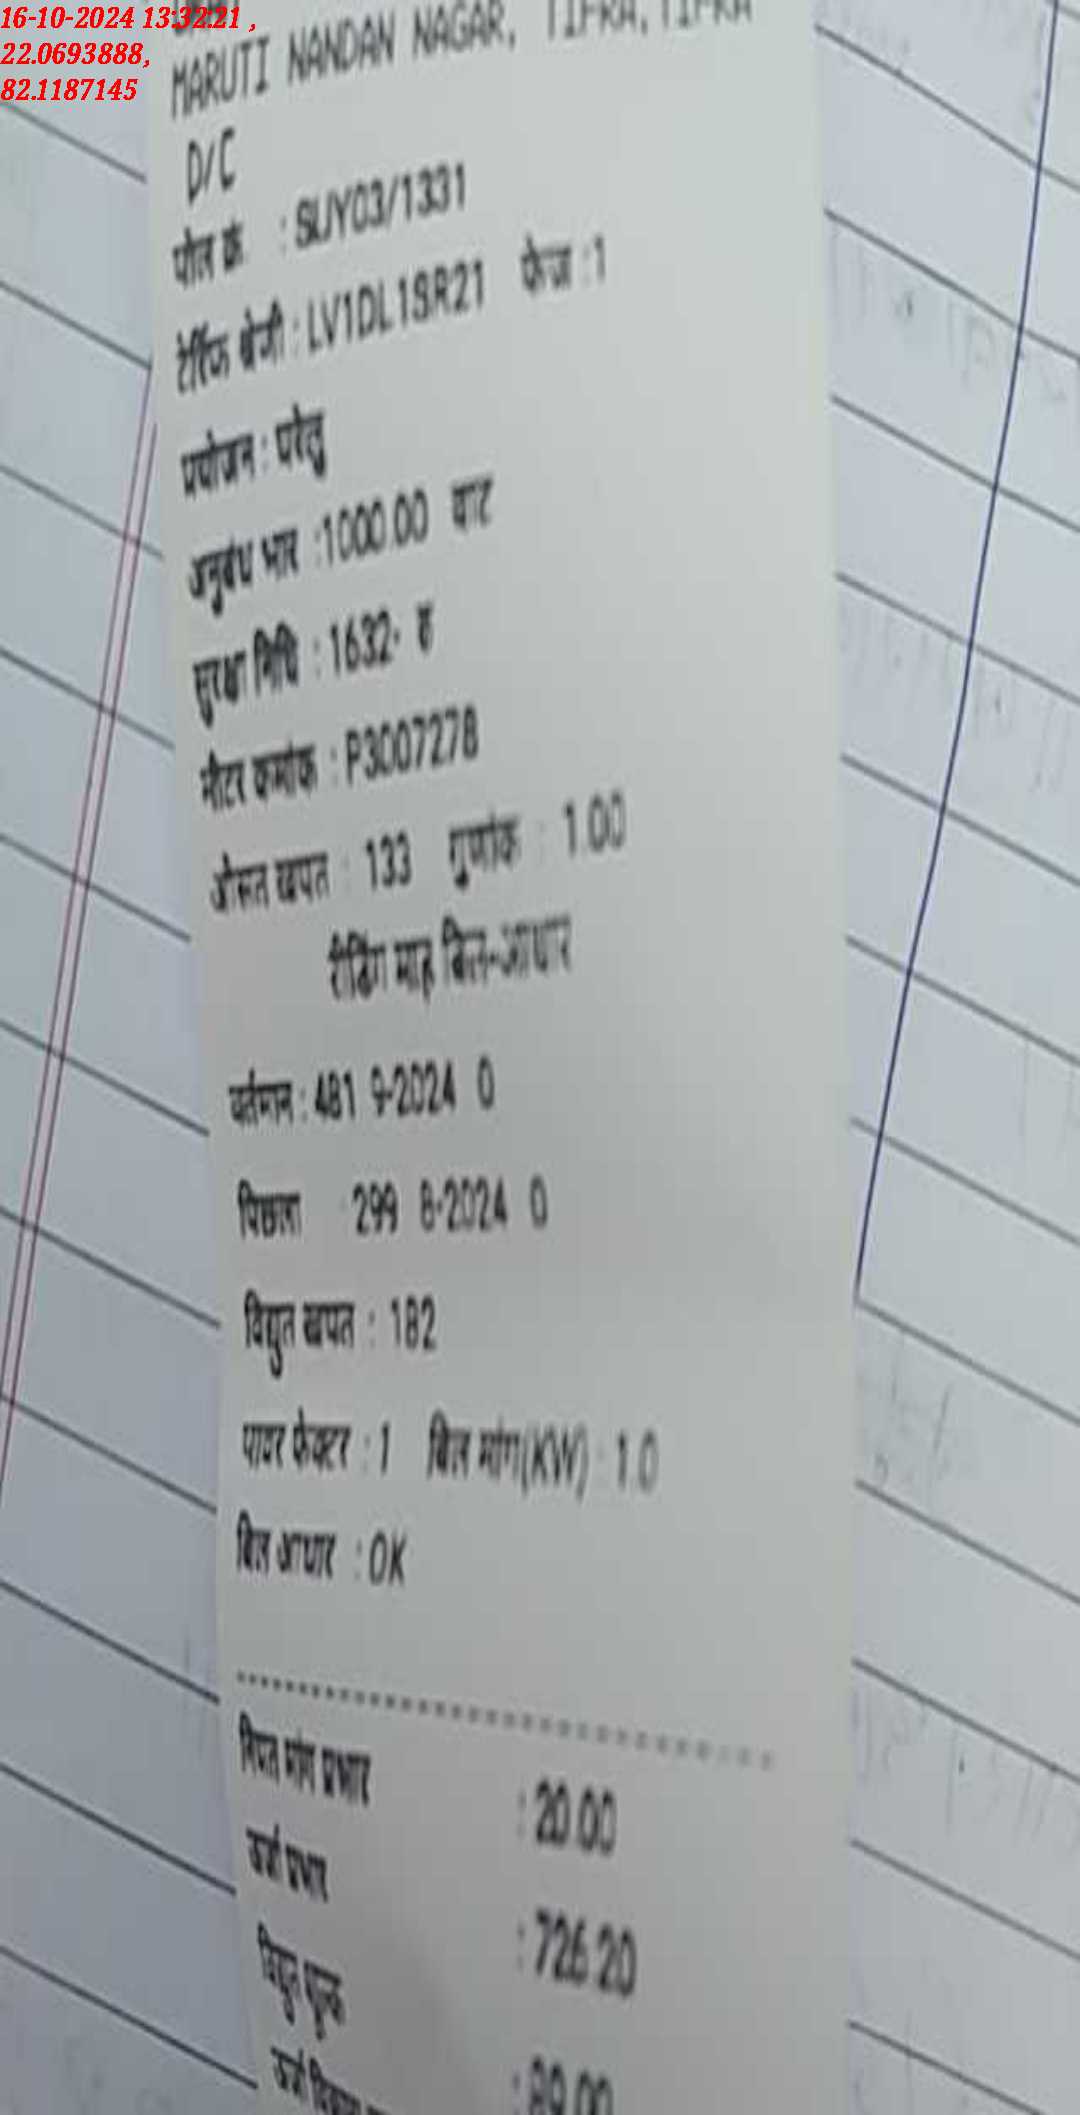 16-10-2024 13:32:21 ,
22.0693888,
82.1187145
MARUTI NANDAN NAGAR, TIFRA,TIFRA
D/C
पोल क्रं : SUY03/1331
टेरिफ श्रेणी : LV1DL1SR21 फेज :1
प्रयोजन : घरेलु
अनुबंध भार :1000.00 वाट
सुरक्षा निधि : 1632-
मीटर कमांक : P3007278
औसत खपत : 133 गुणांक : 1.00
रीडिंग माह बिल-आधार
वर्तमान : 481 9-2024 0
पिछला 299 8-2024 0
विद्युत खपत : 182
पावर फेक्टर : 1 बिल मांग(KW) : 1.0
बिल आधार : OK
नियत मांग प्रभार : 20.00
उर्जा प्रभार : 726.20
विद्युत शुल्क : 89.00